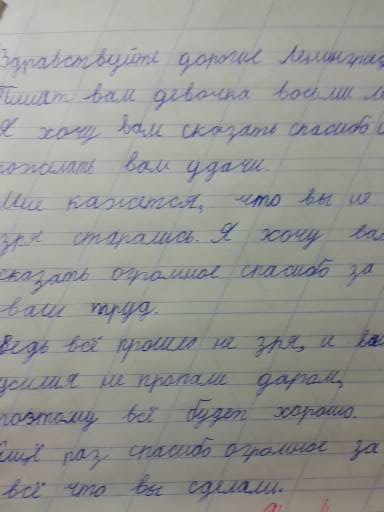 Здравствуйте дорогие Ленинград
Пишат вам девочка восьми ле
Я хочу вам сказать спасибо и
пожелать вам удачи.
Мне кажется, что вы не
зря старались. Я хочу вам
сказать огромное спасибо за
ваш труд.
Ведь всё прошло не зря, и ва
усилия не пропали даром,
поэтому всё будет хорошо.
Ещё раз спасибо огромное за
всё что вы сделали.